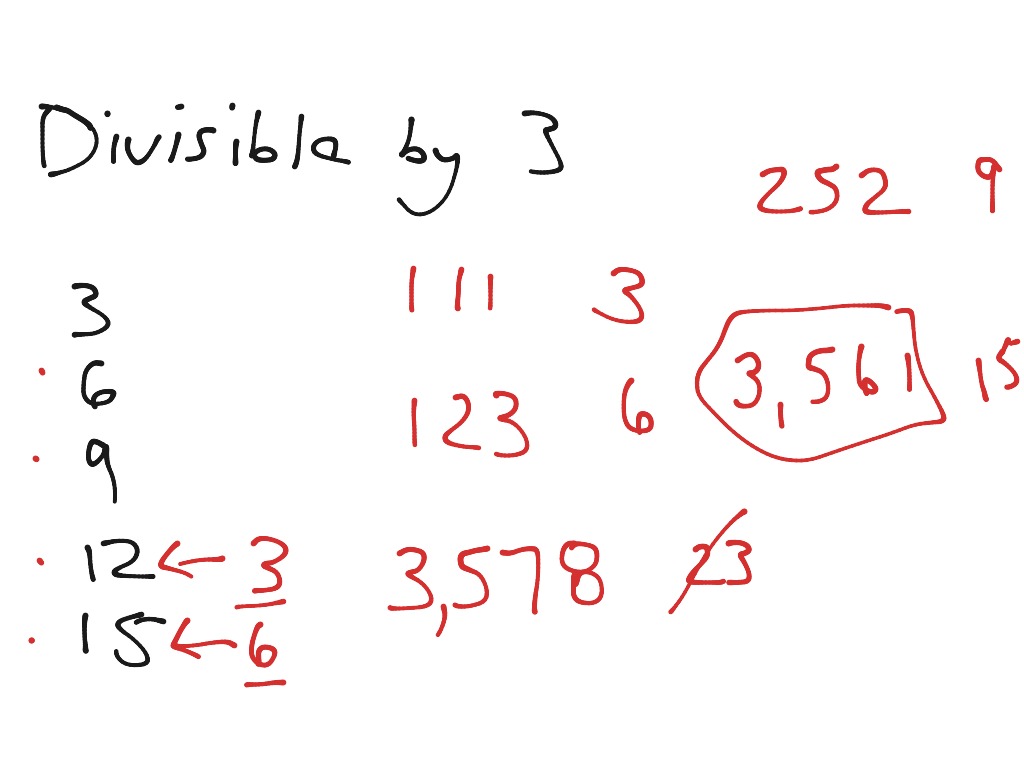 Divisible by 3
252 9
3
111 3
6
3,561 15
123 6
9
12 ← 3
3,578 23
15 ← 6